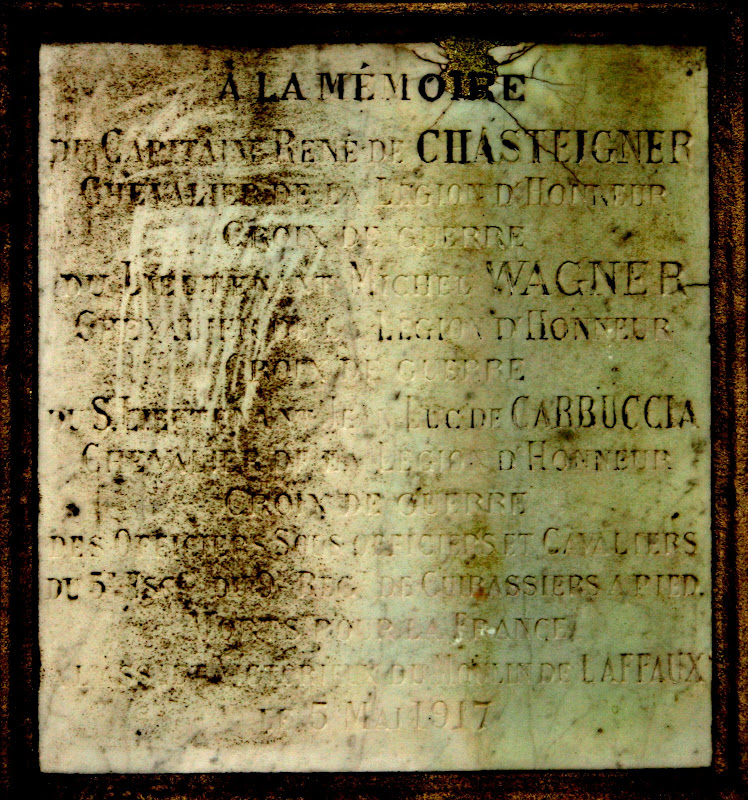 À LA MÉMOIRE
DU CAPITAINE RENÉ DE CHASTEIGNER
CHEVALIER DE LA LÉGION D'HONNEUR
CROIX DE GUERRE
DU LIEUTENANT MICHEL WAGNER
CHEVALIER DE LA LÉGION D'HONNEUR
CROIX DE GUERRE
DU S. LIEUTENANT JEAN LUC DE CARBUCCIA
CHEVALIER DE LA LÉGION D'HONNEUR
CROIX DE GUERRE
DES OFFICIERS SOUS OFFICIERS ET CAVALIERS
DU 5E ESCON DU 9E REG. DE CUIRASSIERS A PIED.
MORTS POUR LA FRANCE
A L'ASSAUT VICTORIEUX DU MOULIN DE LAFFAUX
LE 5 MAI 1917